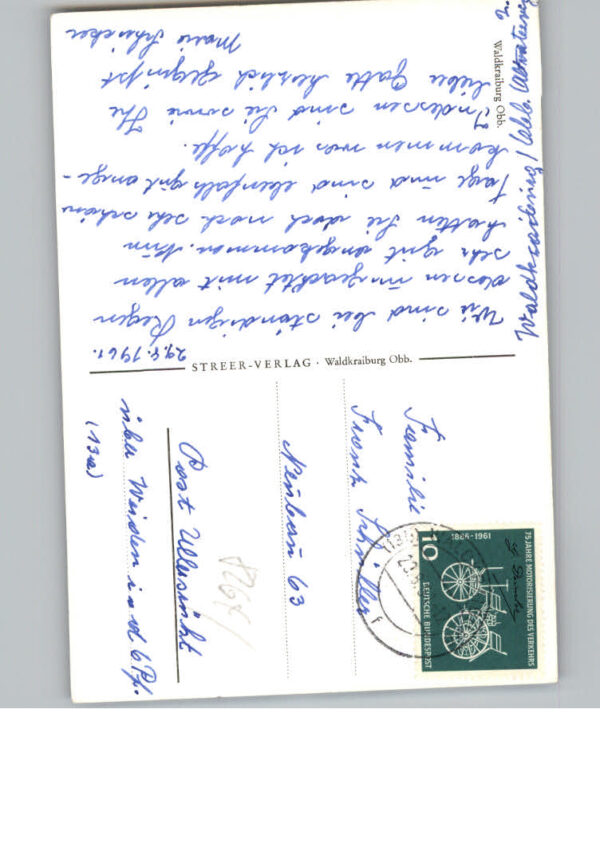 Waldkraiburg Obb.
29.8.1961.
Wir sind bei ständigen Regen
dessen ungeachtet mit allen
sehr gut angekommen. Nun
hatten Sie doch noch sehr schöne
Tage und sind ebenfalls gut ange-
kommen was ich hoffe.
Indessen sind Sie sowie Ihr
lieber Gatte herzlich gegrüßt
Maria
STREER-VERLAG · Waldkraiburg Obb.
Familie
Franz Schiller
Neubau 63
Post Ullersricht
über Weiden i. d. OPf.
(13a)
75 JAHRE MOTORISIERUNG DES VERKEHRS
1886-1961
10
DEUTSCHE BUNDESPOST